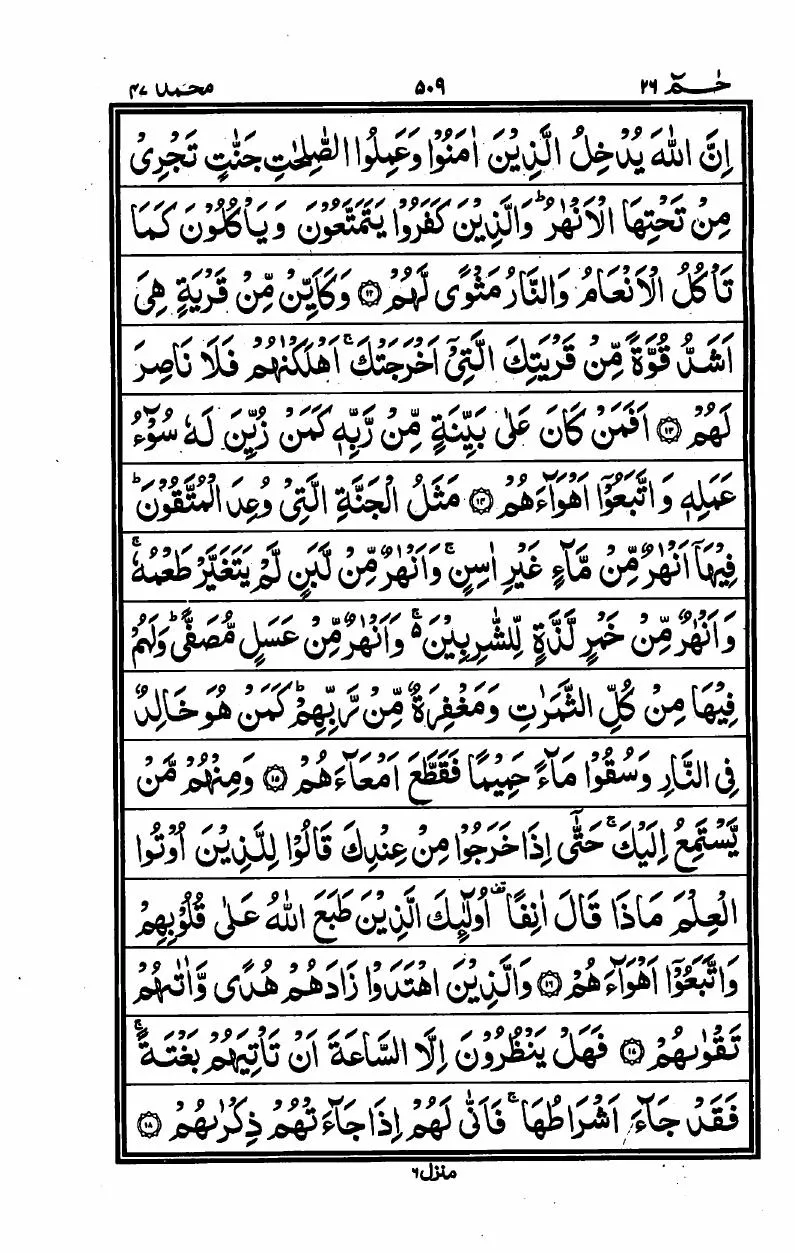 حٰمٓ ٢٦ ٥٠٩ محمد ٤٧
اِنَّ اللّٰهَ يُدْخِلُ الَّذِيْنَ اٰمَنُوْا وَعَمِلُوا الصّٰلِحٰتِ جَنّٰتٍ تَجْرِىْ
مِنْ تَحْتِهَا الْاَنْهٰرُ ؕ وَالَّذِيْنَ كَفَرُوْا يَتَمَتَّعُوْنَ وَيَاْكُلُوْنَ كَمَا
تَاْكُلُ الْاَنْعَامُ وَالنَّارُ مَثْوًى لَّهُمْ ۝۱۲ وَكَاَيِّنْ مِّنْ قَرْيَةٍ هِىَ
اَشَدُّ قُوَّةً مِّنْ قَرْيَتِكَ الَّتِىْۤ اَخْرَجَتْكَ ۚ اَهْلَكْنٰهُمْ فَلَا نَاصِرَ
لَهُمْ ۝۱۳ اَفَمَنْ كَانَ عَلٰى بَيِّنَةٍ مِّنْ رَّبِّهٖ كَمَنْ زُيِّنَ لَهٗ سُوْٓءُ
عَمَلِهٖ وَاتَّبَعُوْۤا اَهْوَآءَهُمْ ۝۱۴ مَثَلُ الْجَنَّةِ الَّتِىْ وُعِدَ الْمُتَّقُوْنَ ؕ
فِيْهَاۤ اَنْهٰرٌ مِّنْ مَّآءٍ غَيْرِ اٰسِنٍ ۚ وَاَنْهٰرٌ مِّنْ لَّبَنٍ لَّمْ يَتَغَيَّرْ طَعْمُهٗ ۚ
وَاَنْهٰرٌ مِّنْ خَمْرٍ لَّذَّةٍ لِّلشّٰرِبِيْنَ ۚ۬ وَاَنْهٰرٌ مِّنْ عَسَلٍ مُّصَفًّى ؕ وَلَهُمْ
فِيْهَا مِنْ كُلِّ الثَّمَرٰتِ وَمَغْفِرَةٌ مِّنْ رَّبِّهِمْ ؕ كَمَنْ هُوَ خَالِدٌ
فِى النَّارِ وَسُقُوْا مَآءً حَمِيْمًا فَقَطَّعَ اَمْعَآءَهُمْ ۝۱۵ وَمِنْهُمْ مَّنْ
يَّسْتَمِعُ اِلَيْكَ ۚ حَتّٰۤى اِذَا خَرَجُوْا مِنْ عِنْدِكَ قَالُوْا لِلَّذِيْنَ اُوْتُوا
الْعِلْمَ مَاذَا قَالَ اٰنِفًا ۫ اُولٰٓئِكَ الَّذِيْنَ طَبَعَ اللّٰهُ عَلٰى قُلُوْبِهِمْ
وَاتَّبَعُوْۤا اَهْوَآءَهُمْ ۝۱۶ وَالَّذِيْنَ اهْتَدَوْا زَادَهُمْ هُدًى وَّاٰتٰىهُمْ
تَقْوٰىهُمْ ۝۱۷ فَهَلْ يَنْظُرُوْنَ اِلَّا السَّاعَةَ اَنْ تَاْتِيَهُمْ بَغْتَةً ۚ
فَقَدْ جَآءَ اَشْرَاطُهَا ۚ فَاَنّٰى لَهُمْ اِذَا جَآءَتْهُمْ ذِكْرٰىهُمْ ۝۱۸
منزل ٦